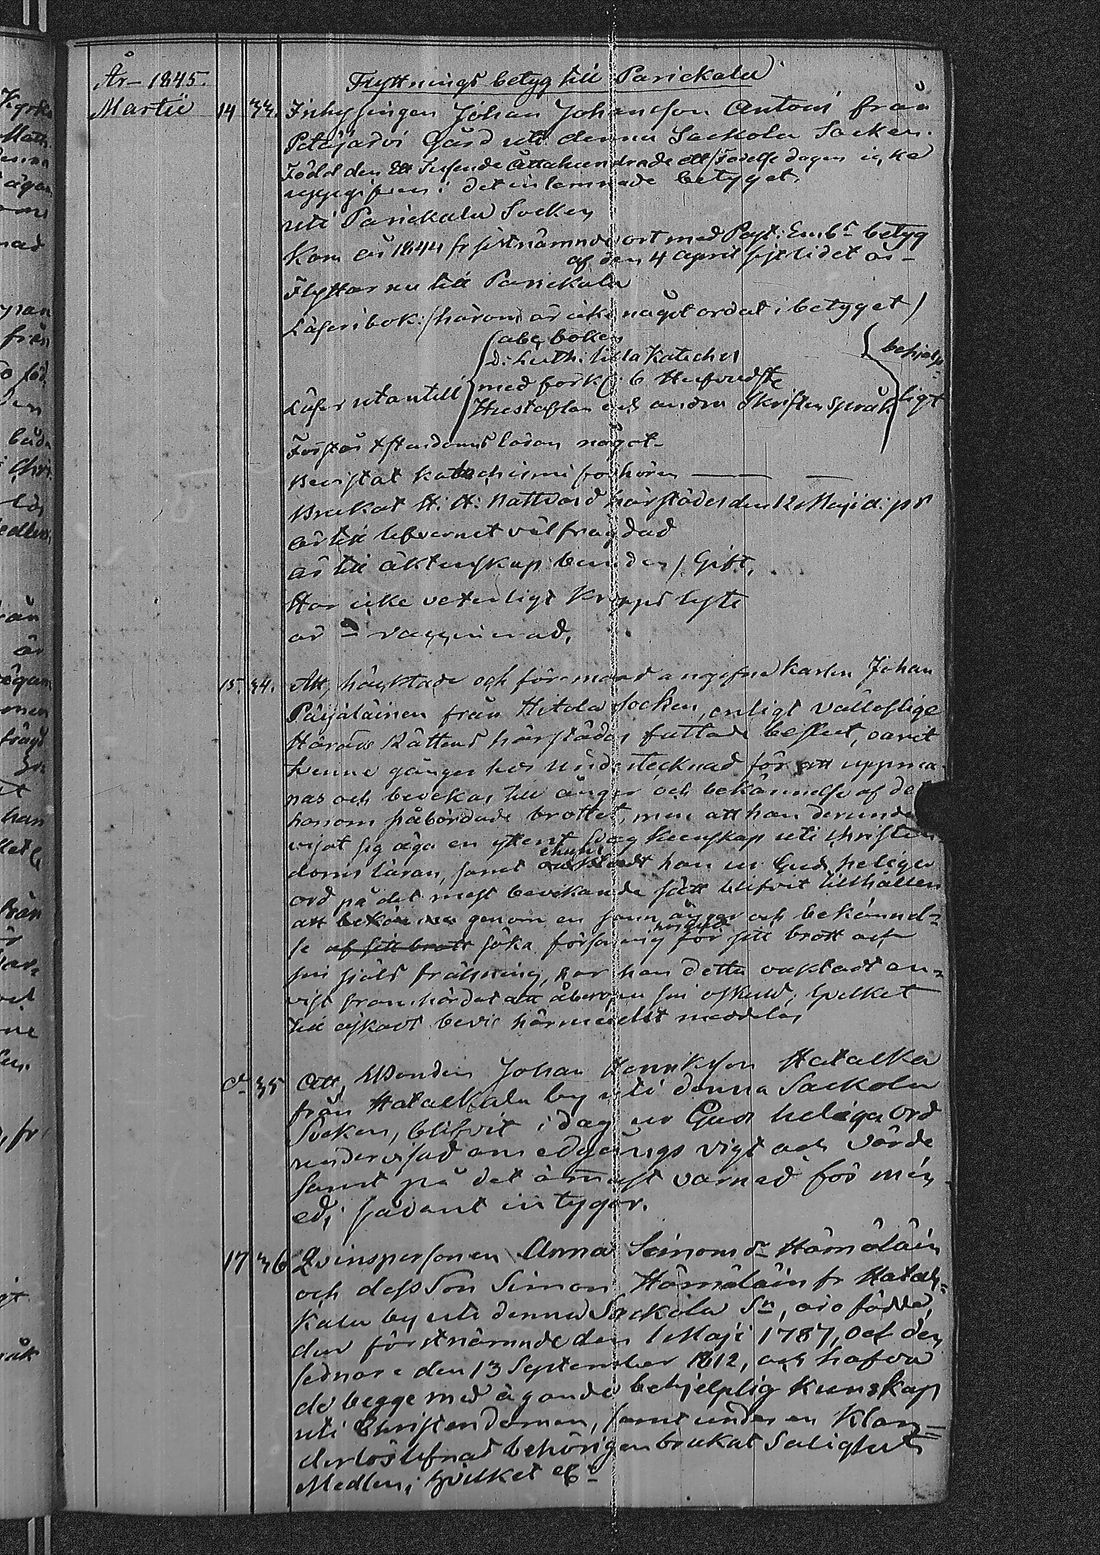 År 1845.
Flyttnings betyg till Parickala
Martii 14 33. Inhysingen Johan Johansson Antoni från
Petäjärvi Gård uti denna Sackola Socken.
Född den Ett Tusende Åttahundrade Födelse dagen icke
uppgifven i det inlemnade betyget.
uti Parickala Socken
Kom år 1844 fr sistnämnde ort med Past: Emb:s betyg
af den 4 April sistlidet år
Flyttar nu till Parickala
Läser i bok (härom är icke något ordat i betyget)
abc boken
D: Luth: lilla Kateches
Läser utantill med förkl: 6 Hufvudst
Hustaflan och andra Skriftenes språk
behjelp-
ligt
Förstår Christendoms läran något
Bevistat Katechismi förhören
Brukat H. H. Nattvard härstädes den 12 Maji d: år
är till lefvernet välfrägdad
är till äktenskap bunden / Gift.
Har icke veterligt Kropps lyte
är vaccinerad.
15. 34. Att, häktade och för mord angifne karlen Johan
Pärjäläinen från Hitola Socken, enligt vällofliga
Härads Rättens härstädes fattade beslut, varit
trenne gånger hos undertecknad för att uppma-
nas och bevekas till ånger och bekännelse af det
honom påbördade brottet, men att han derunder
visat sig äga en ytterst svag kunskap uti Christen-
doms läran, samt ehuru han ur Guds heliga
ord på det mest bevekande sätt blifvit tillhållen
att genom en sann ånger och bekännel-
se af sitt brott söka försoning för sitt brott och
sin själs frälsning, har han detta oaktadt en-
vist framhärdat att åberopa sin oskuld, hvilket
till äskadt bevis härmedelst meddelas
d:o 35 Att, Bonden Johan Henriksson Hatakka
från Hatakkala by uti denna Sackola
Socken, blifvit i dag ur Guds heliga Ord
undervisad om edgångs vigt och värde
samt på det ömmast varnad för men-
ed; sådant intygar.
17 36 Qvinspersonen Anna Simonsdr Hämäläin
och dess Son Simon Hämäläin fr Hatak-
kala by uti denna Sackola Sn, äro födde,
den förstnämnde den 1 Maji 1787, och den
sednare den 13 September 1812, och hafva
de begge med ägande behjelplig Kunskap
uti Christendomen, samt under en Klan-
derlös lefnad behörigen brukat Salighets
Medlen; hvilket etc